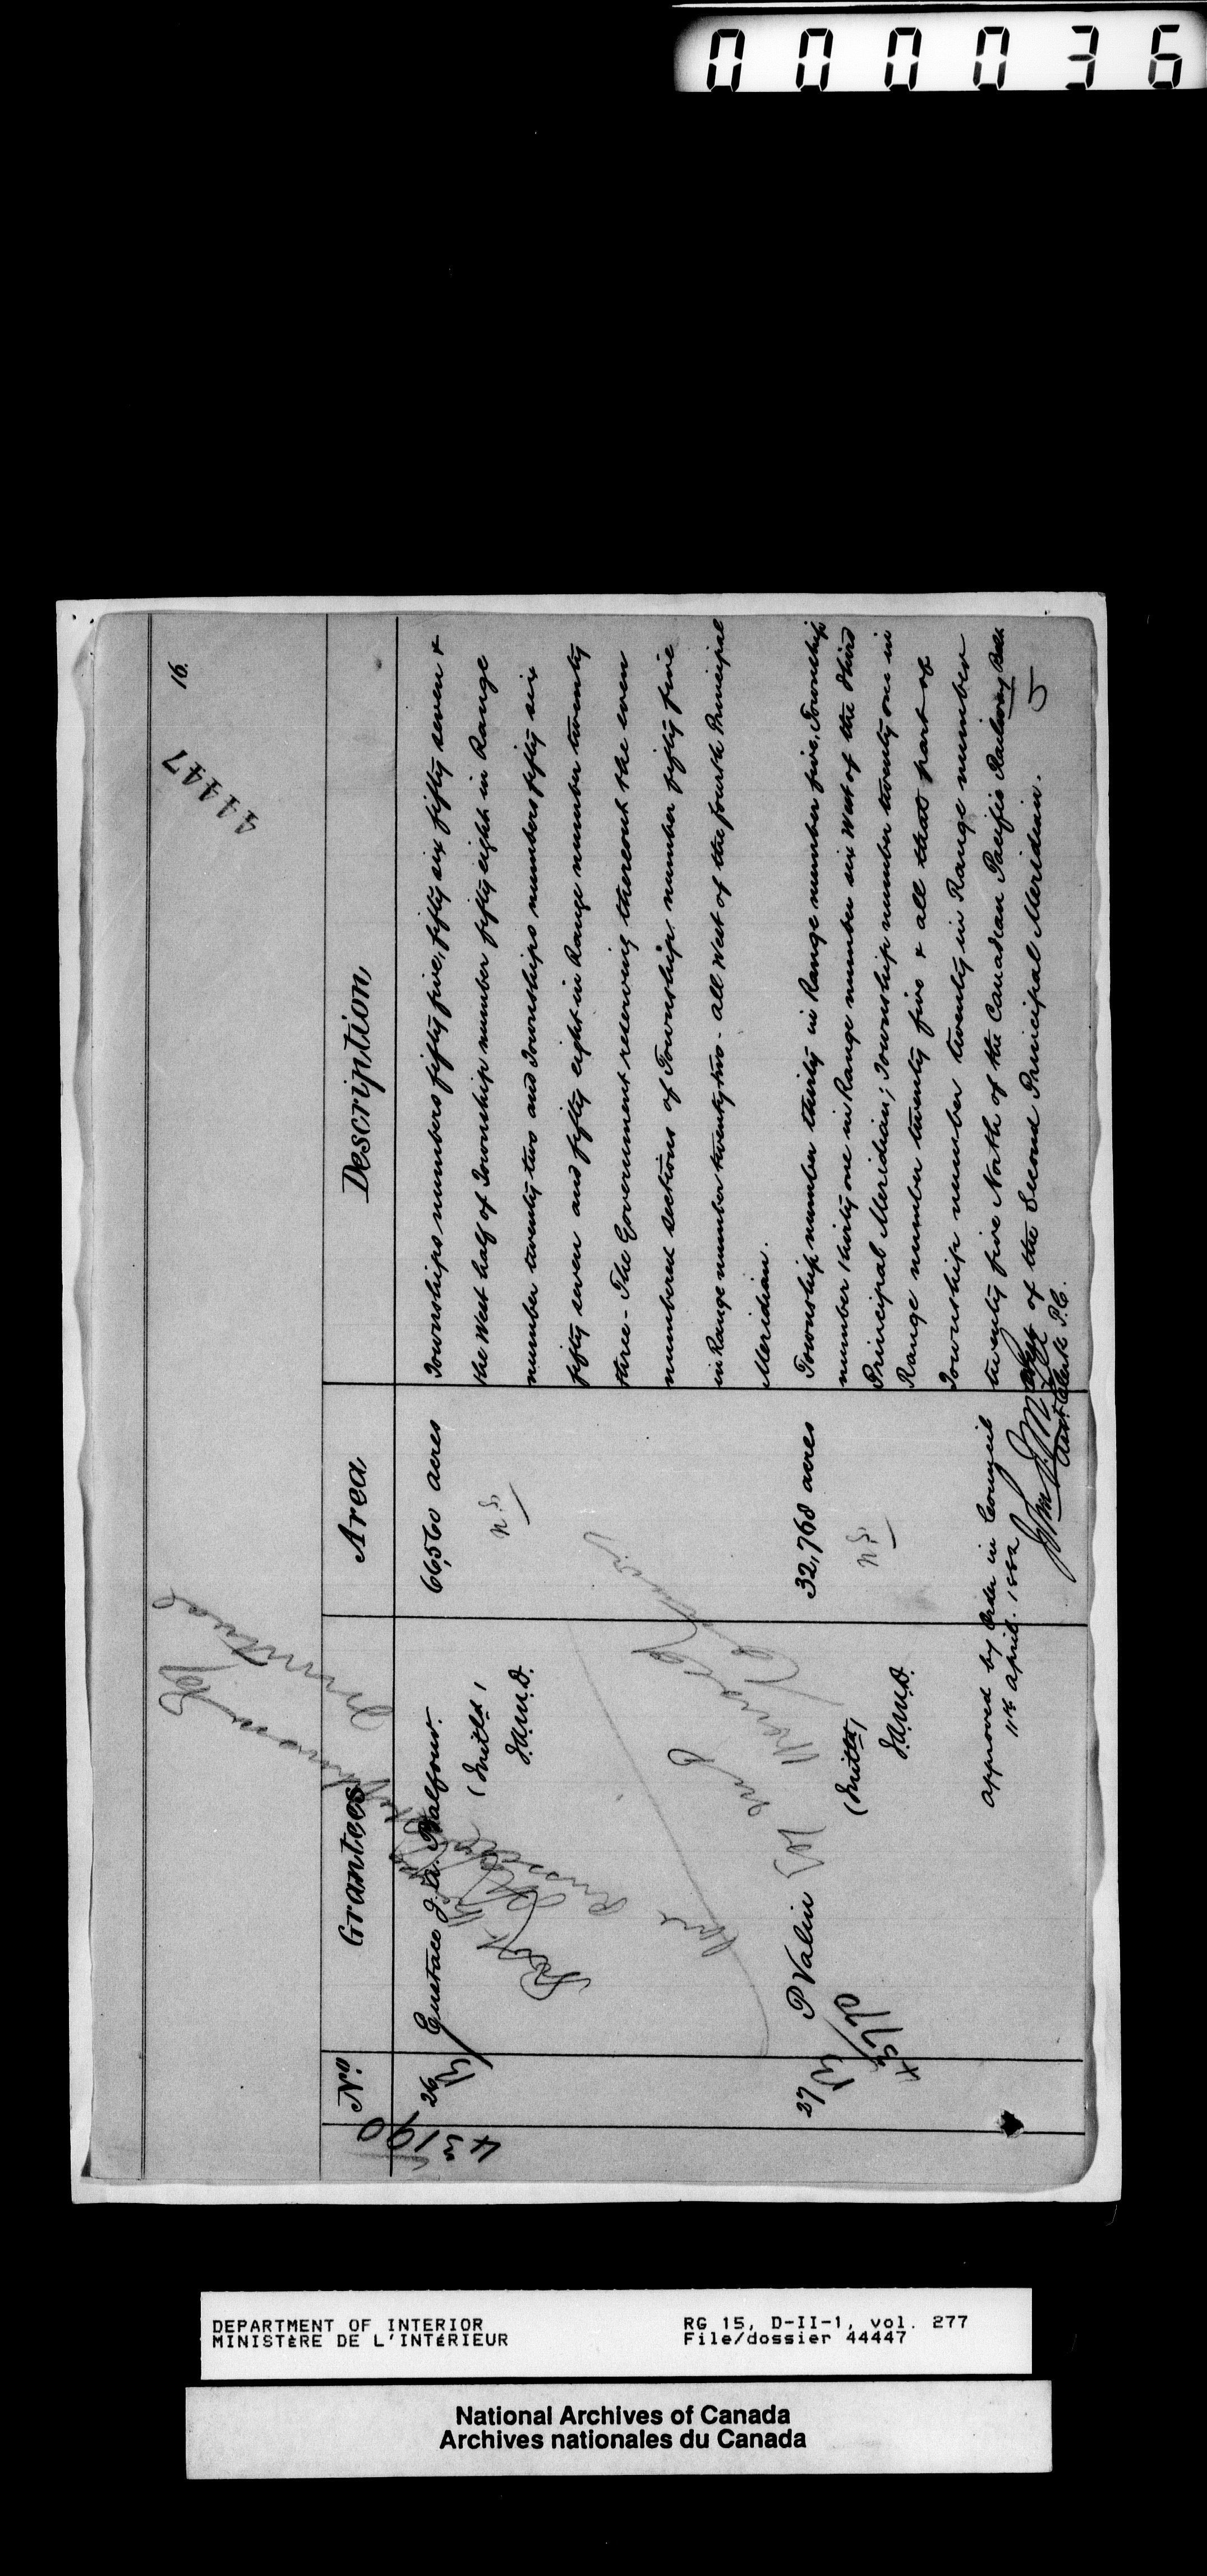 000036
16.
44447
Nº
Grantees
Area
Description
43190
26
Eustace J. A. Balfour.
J.A.M.D.
66,560 acres
Townships numbers fifty five, fifty six fifty seven &
the West half of Township number fifty eight in Range
number twenty two and Townships numbers fifty six
fifty seven and fifty eight in Range number twenty
three - The Government reserving thereout the even
numbered sections of Township number fifty five
in Range number twenty two - all West of the fourth Principal
Meridian.
27
P Valin
J.A.M.D.
32,768 acres
Township number thirty in Range number five, Township
number thirty one in Range number six West of the third
Principal Meridian; Township number twenty one in
Range number twenty five & all that part of
Township number twenty in Range number
twenty five North of the Canadian Pacific Railway Belt
of the Second Principal Meridian.
5
approved by Order in Council
11th April. 1882
Asst Clerk P.C.
DEPARTMENT OF INTERIOR
MINISTÈRE DE L'INTÉRIEUR
RG 15, D-II-1, vol. 277
File/dossier 44447
National Archives of Canada
Archives nationales du Canada